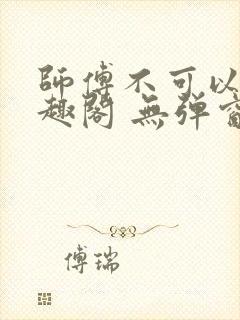 師傅不可以
趣閣 無弹窗
傅瑞